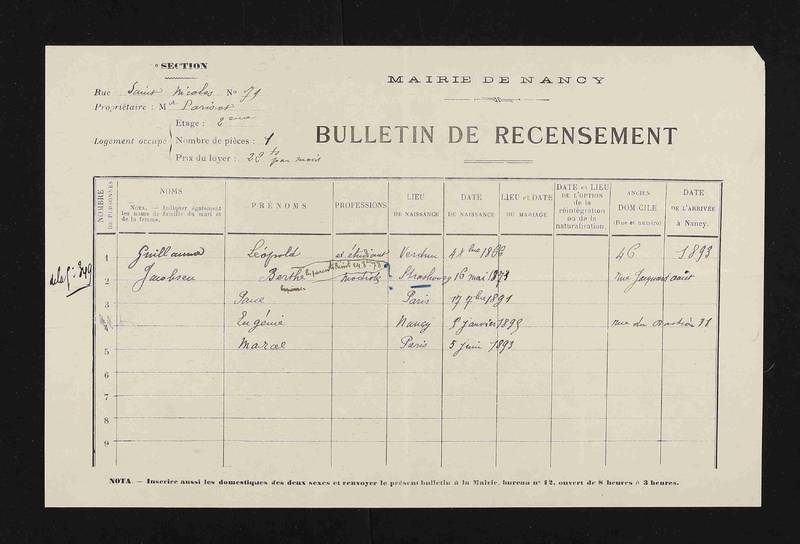 SECTION
MAIRIE DE NANCY
Rue Saint Nicolas No 79
Propriétaire : Mr Parisot
Etage : 2eme
BULLETIN DE RECENSEMENT
Logement occupé
Nombre de pièces : 1
Prix du loyer : 22 par mois
NOMBRE DE PERSONNES
NOMS
NOTA. — Indiquer également les noms de famille du mari et de la femme.
PRÉNOMS
PROFESSIONS
LIEU DE NAISSANCE
DATE DE NAISSANCE
LIEU et DATE DU MARIAGE
DATE et LIEU DE L'OPTION de la réintégration ou de la naturalisation.
ANCIEN DOMICILE (Rue et numéro)
DATE DE L'ARRIVÉE à Nancy.
1 Guillaume Léopold et. étudiant Verdun 4 8bre 1866 46 1893
2 Jacobsen Berthe modiste Strasbourg 16 mai 1873 rue Jacquard août
3 Paris 17 7bre 1891
4 Eugénie Nancy 5 janvier 1895 rue du Bastion
5 Marcel Paris 5 juin 1893
6
7
8
9
NOTA. — Inscrire aussi les domestiques des deux sexes et renvoyer le présent bulletin à la Mairie, bureau nº 12, ouvert de 8 heures à 3 heures.